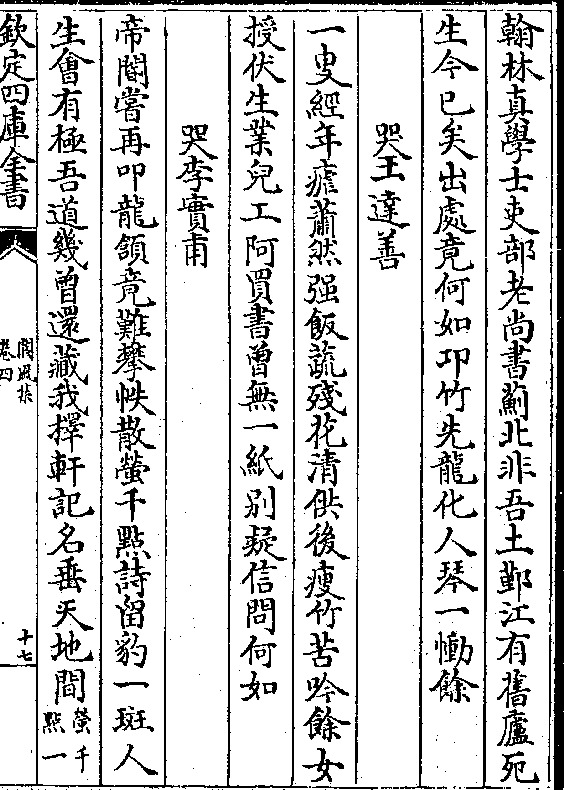 翰林真學士吏部老尚書薊北非吾土鄞江有舊廬死
生今已矣出處竟何如卭竹先龍化人琴一慟餘
哭王達善
一叟經年瘧蕭然强飯蔬殘花清供後瘦竹苦吟餘女
授伏生業兒工阿買書曽無一紙别疑信問何如
哭李實甫
帝閽嘗再叩龍頷竟難攀帙散螢千點詩留豹一斑人
生㑹有極吾道幾曽還藏我擇軒記名垂天地間螢千
點一
欽定四庫全書
卷四
十七